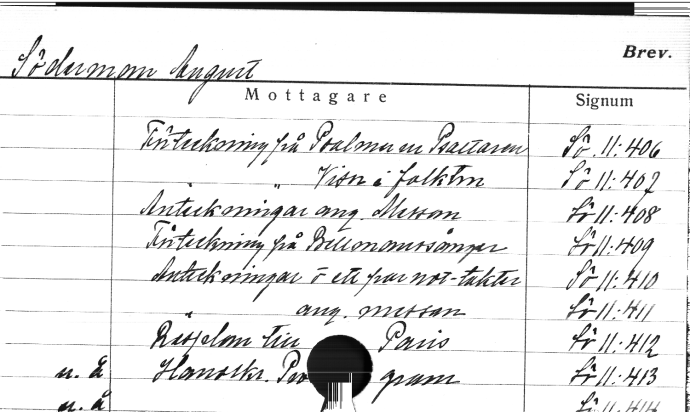 Brev.
Söderman August
Mottagare Signum
Förteckning på Psalmer ur Psaltaren Sö. 11:406
" " Visor i folkton Sö 11:407
Anteckningar ang. Messan Sö 11:408
Förteckning på Bellmanssånger Sö 11:409
Anteckningar o ett par not-takter Sö 11:410
" ang. messan Sö 11:411
Resplan till Paris Sö 11:412
u. å Handskr. Pro gram Sö 11:413
u. å Sö 11:414